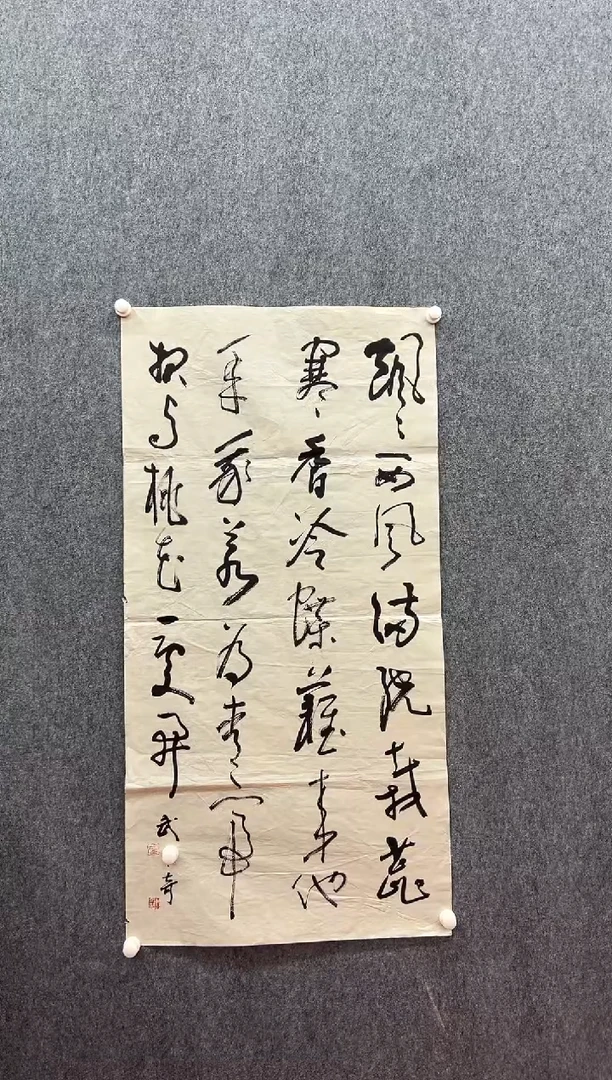 飒々西风满院栽蕊
寒香冷蝶难来他
年我若为青帝
报与桃花一处开
武奇